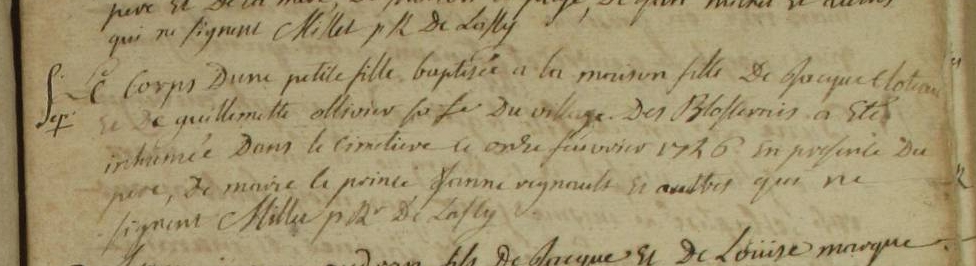 pere Et De la mere, De
qui ne signent Millet p R De Lasly
Sep.
Le Corps Dune petite fille baptisée a la maison fille De Jacque
Et De guillemette ollivier sa fe Du village Des a Eté
inhumée Dans le Cimetiere Ce onze feuvrier 1726 En presence Du
pere, De marie le prince Janne regnault Et autres qui ne
signent Millet p Rr De Lasly
fils De Jacque Et De Louise marque